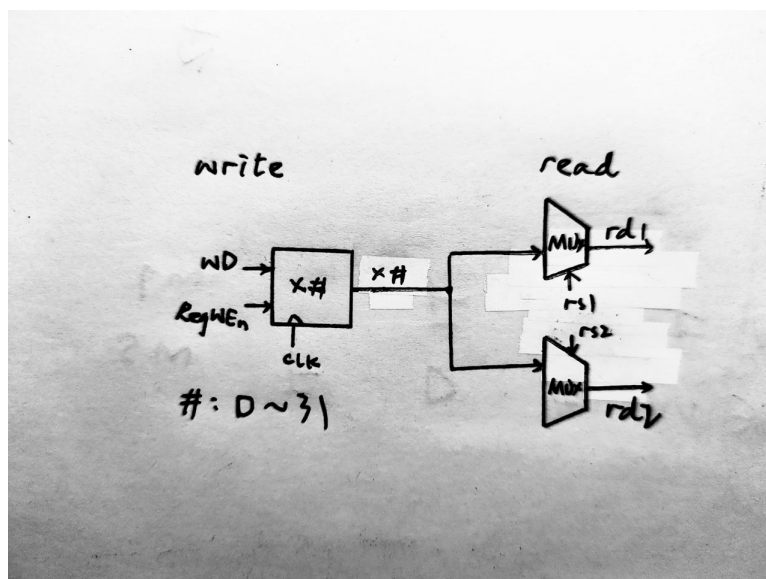 write
read
WD
RegWEn
x#
CLK
x#
Mux
rd1
rs1
rs2
Mux
rd2
#: 0~31